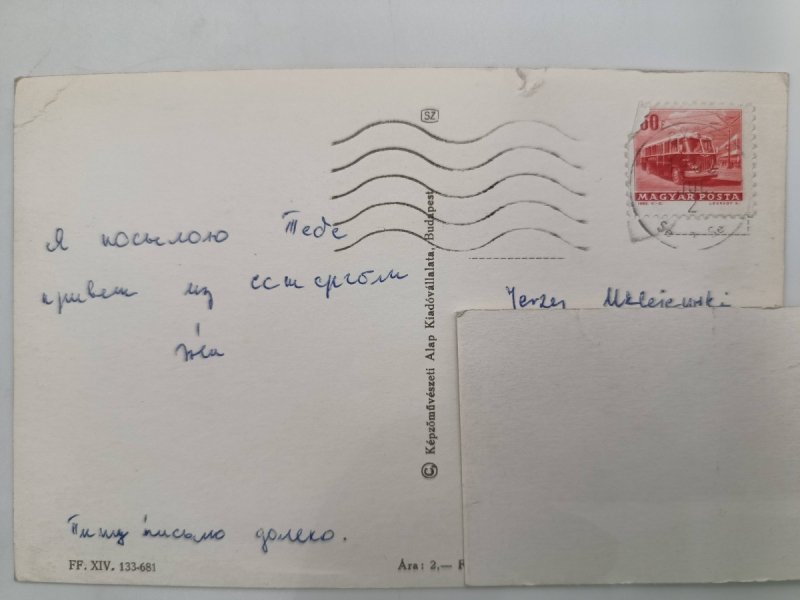 SZ
60f
MAGYAR POSTA
Я посылою Тебе
привет из естергом
Jerzy
Képzőművészeti Alap Kiadóvállalata, Budapest
Пишу письмо далеко.
FF. XIV. 133-681
Ára: 2,—